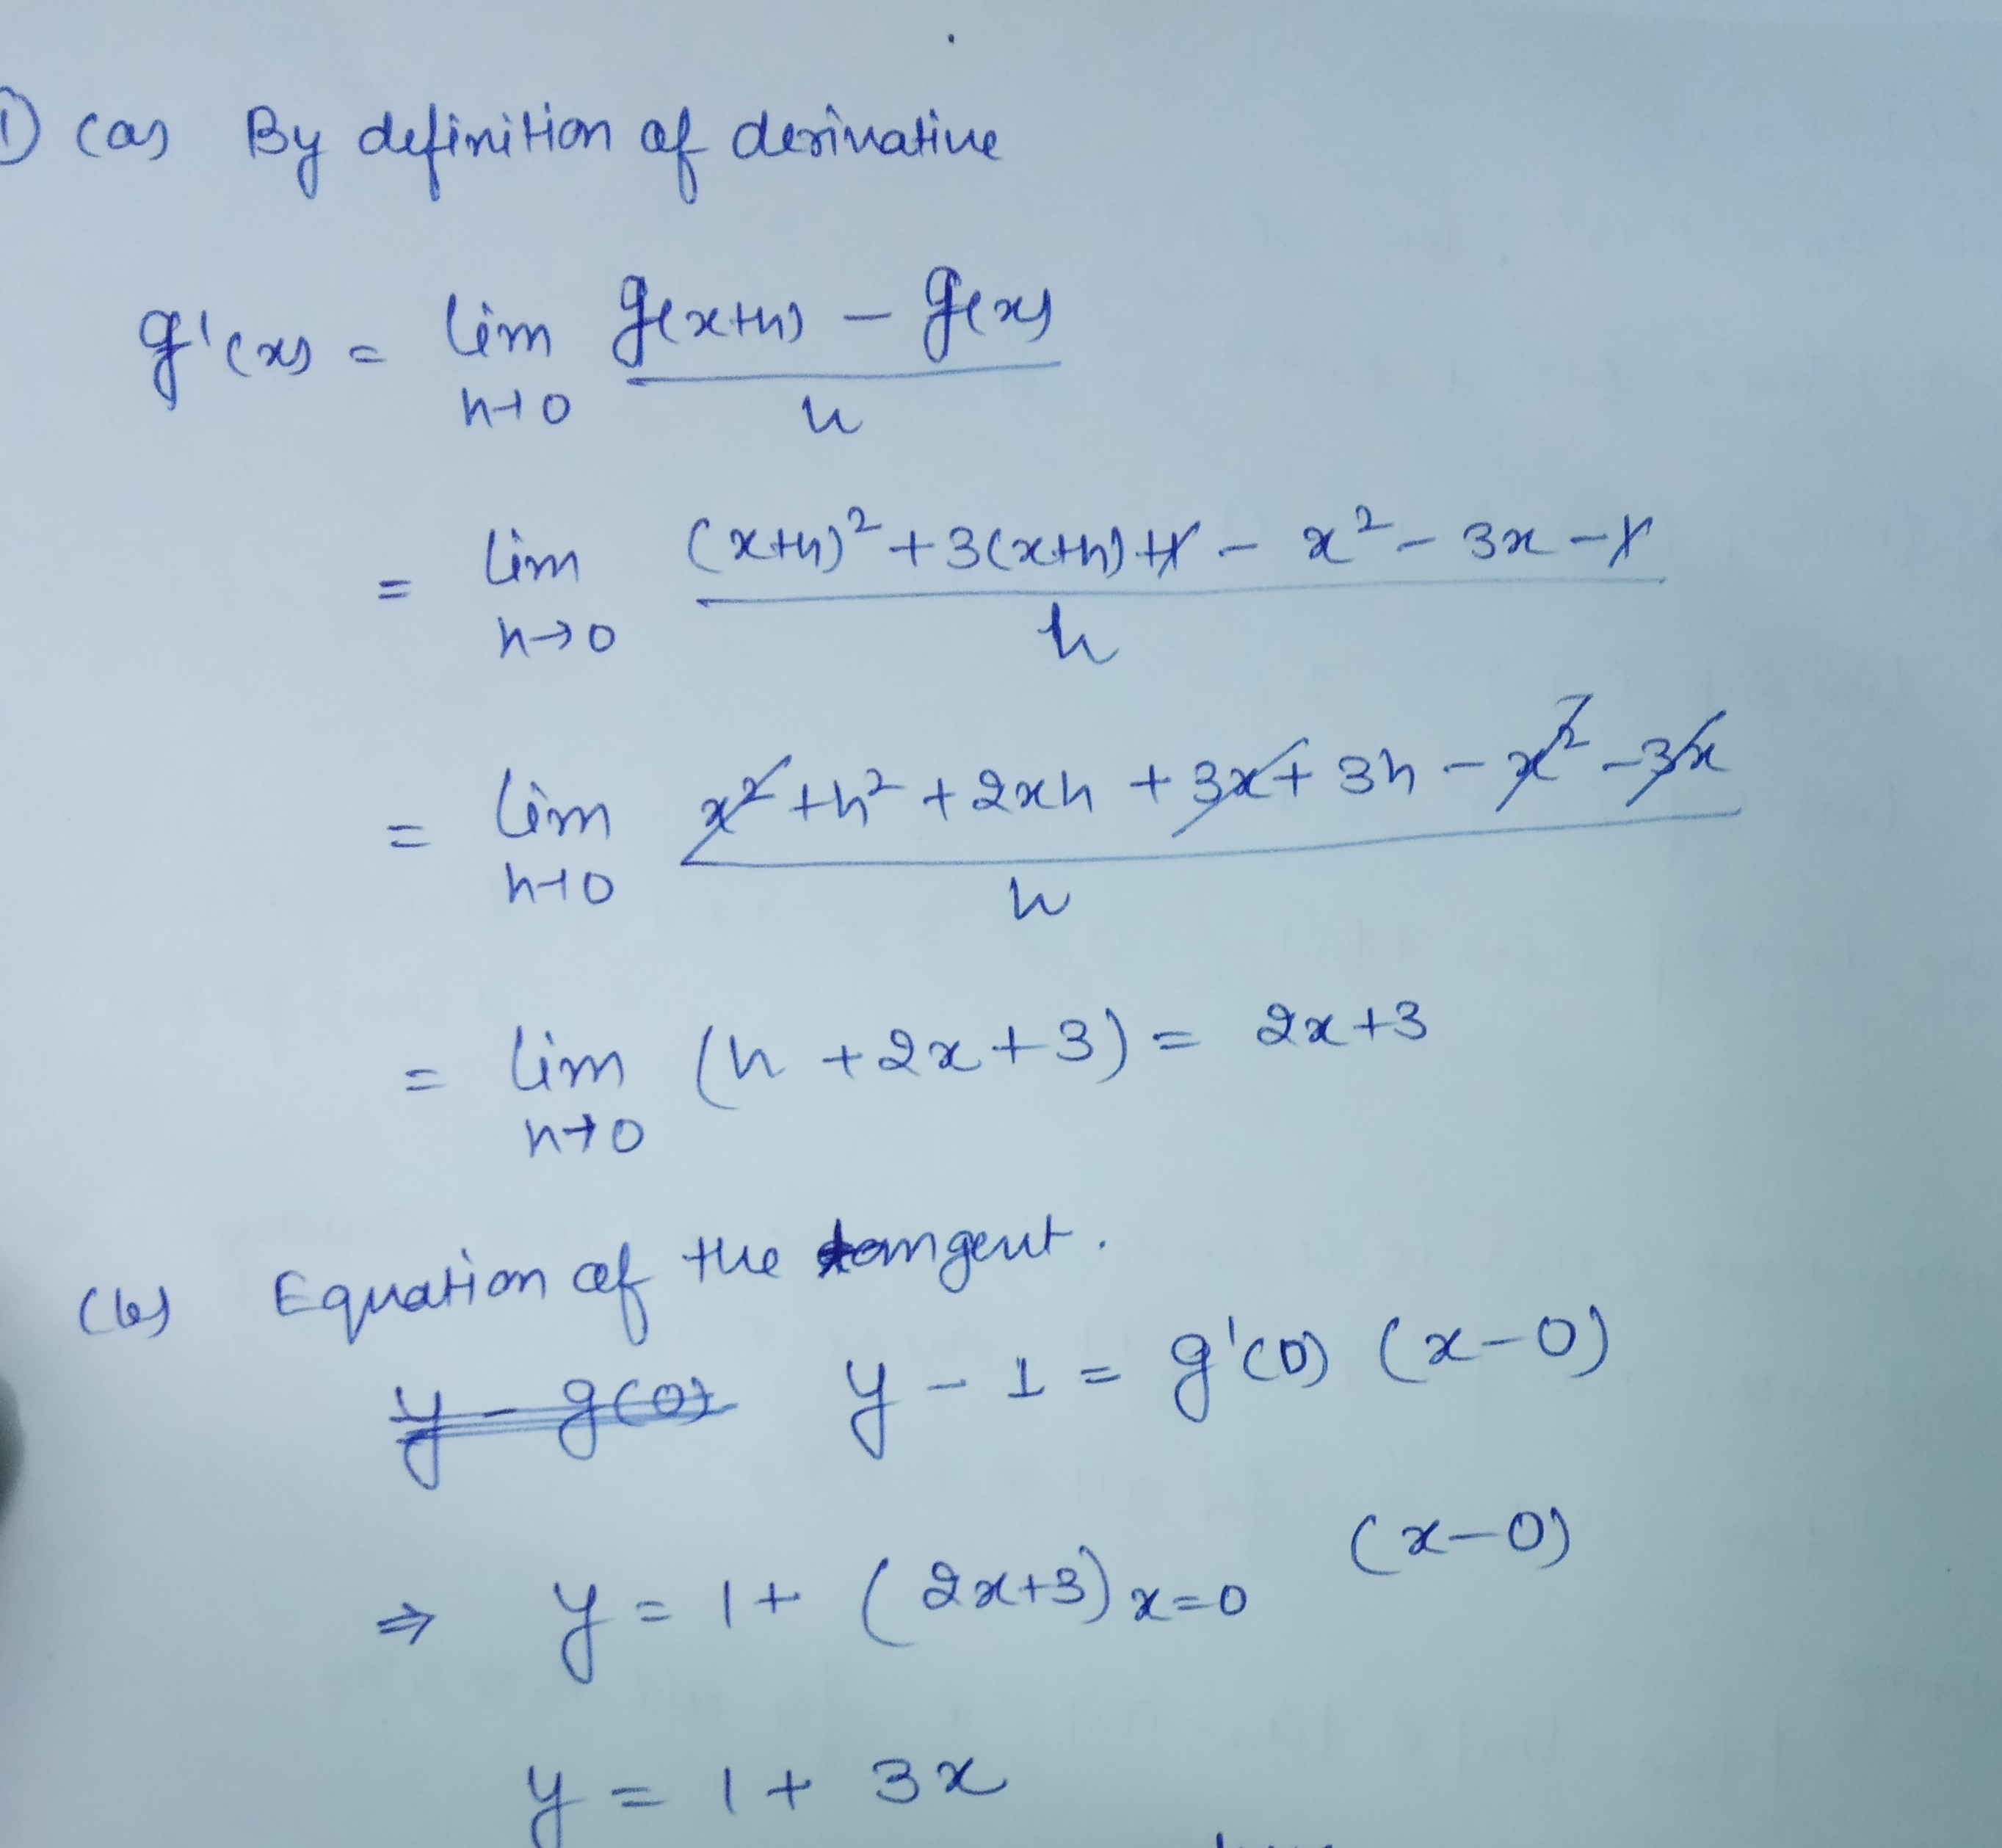 1) (a) By definition of derivative
g'(x) = lim g(x+h) - g(x)
h→0 h
= lim (x+h)² + 3(x+h) + 1 - x² - 3x - 1
h→0 h
= lim x² + h² + 2xh + 3x + 3h - x² - 3x
h→0 h
= lim (h + 2x + 3) = 2x + 3
h→0
(b) Equation of the tangent.
y - g(0) y - 1 = g'(0) (x - 0)
⇒ y = 1 + (2x+3) x=0 (x-0)
y = 1 + 3x